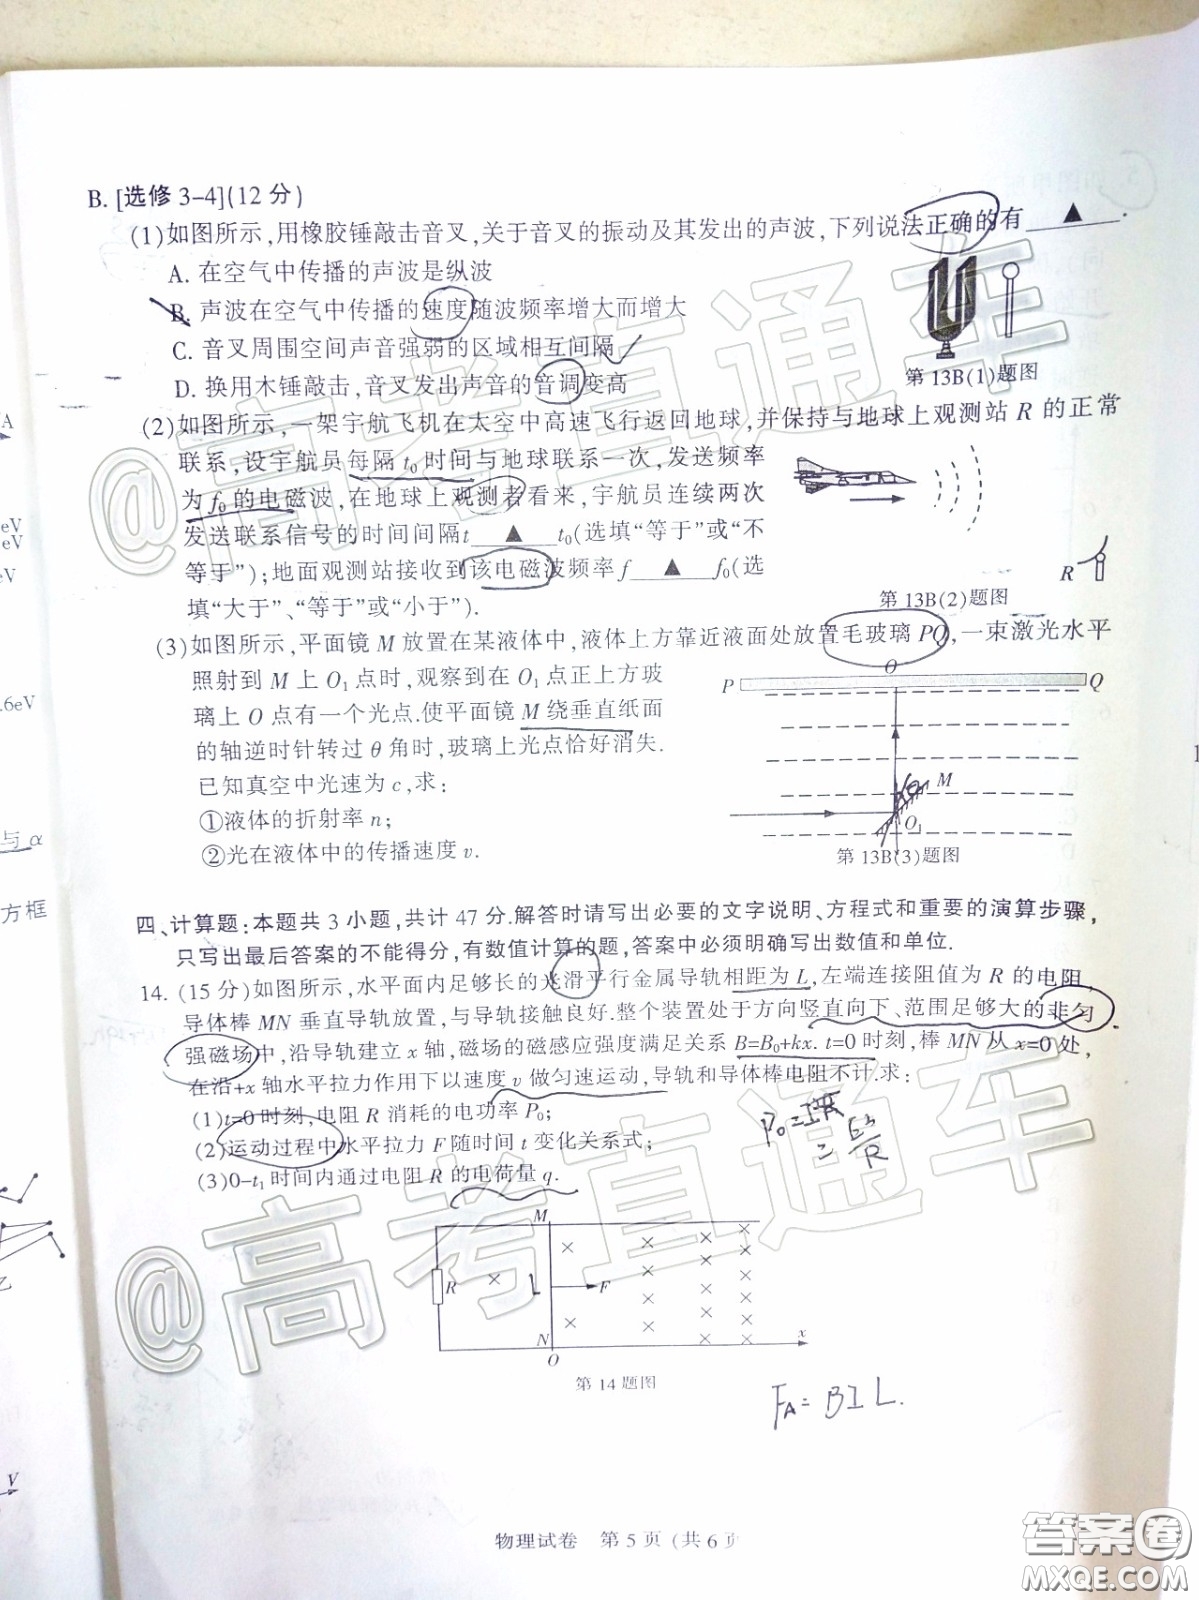 B. [选修 3-4](12 分)
(1)如图所示,用橡胶锤敲击音叉,关于音叉的振动及其发出的声波,下列说法正确的有 ▲ .
A. 在空气中传播的声波是纵波
B. 声波在空气中传播的速度随波频率增大而增大
C. 音叉周围空间声音强弱的区域相互间隔
D. 换用木锤敲击,音叉发出声音的音调变高
第 13B(1)题图
(2)如图所示,一架宇航飞机在太空中高速飞行返回地球,并保持与地球上观测站 R 的正常
联系,设宇航员每隔 t₀ 时间与地球联系一次,发送频率
为 f₀ 的电磁波,在地球上观测者看来,宇航员连续两次
发送联系信号的时间间隔t ▲ t₀(选填“等于”或“不
等于”);地面观测站接收到该电磁波频率 f ▲ f₀(选
填“大于”、“等于”或“小于”).
R
第 13B(2)题图
(3)如图所示,平面镜 M 放置在某液体中,液体上方靠近液面处放置毛玻璃 PQ,一束激光水平
照射到 M 上 O₁ 点时,观察到在 O₁ 点正上方玻
璃上 O 点有一个光点.使平面镜 M 绕垂直纸面
的轴逆时针转过 θ 角时,玻璃上光点恰好消失.
已知真空中光速为 c,求:
①液体的折射率 n;
②光在液体中的传播速度 v.
O
P
Q
M
O₁
第 13B(3)题图
四、计算题:本题共 3 小题,共计 47 分.解答时请写出必要的文字说明、方程式和重要的演算步骤,
只写出最后答案的不能得分,有数值计算的题,答案中必须明确写出数值和单位.
14. (15 分)如图所示,水平面内足够长的光滑平行金属导轨相距为 L,左端连接阻值为 R 的电阻,
导体棒 MN 垂直导轨放置,与导轨接触良好.整个装置处于方向竖直向下、范围足够大的非匀
强磁场中,沿导轨建立 x 轴,磁场的磁感应强度满足关系 B=B₀+kx. t=0 时刻,棒 MN 从 x=0 处,
在沿+x 轴水平拉力作用下以速度 v 做匀速运动,导轨和导体棒电阻不计.求:
(1)t=0 时刻,电阻 R 消耗的电功率 P₀;
(2)运动过程中水平拉力 F 随时间 t 变化关系式;
(3)0-t₁ 时间内通过电阻 R 的电荷量 q.
M
R
L
F
N
x
O
第 14 题图
F_A = BIL.
物理试卷 第 5 页 (共 6 页
eV
eV
eV
.6eV
与 α
方框
乙
V
@高考直通车
@高考直通车
答案圈
MXQE.COM